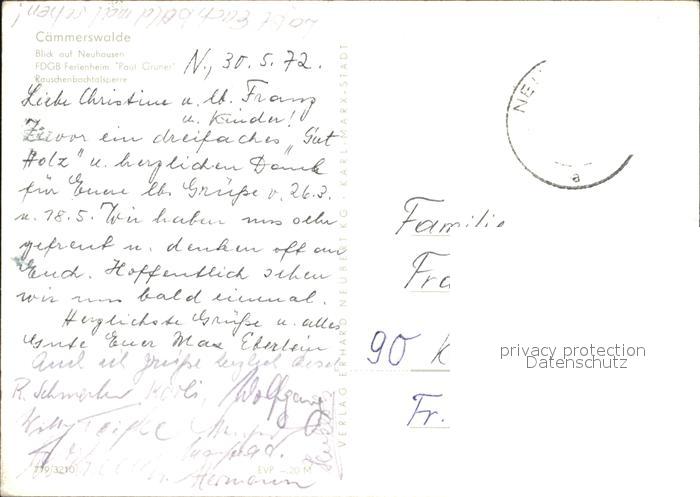 Laßt Euch bald mal sehen!
Cämmerswalde
Blick auf Neuhausen
FDGB Ferienheim "Paul Gruner"
Rauschenbachtalsperre
N., 30.5.72.
Liebe Christine u. lb. Franz
u. Kinder!
Zuvor ein dreifaches "Gut
Holz" u. herzlichen Dank
für Eure lb. Grüße v. 26.3.
u. 18.5. Wir haben uns sehr
gefreut u. denken oft an
Euch. Hoffentlich sehen
wir uns bald einmal.
Herzlichste Grüße u. alles
Gute Euer Max Eberlein
Auch ich grüße herzlich
R. Wolfgang
Willy
Hermann
779/3210
EVP –.20 M
VERLAG ERHARD NEUBERT KG · KARL-MARX-STADT
NEU
a
Familie
Fra
90 K
Fr.
privacy protection
Datenschutz